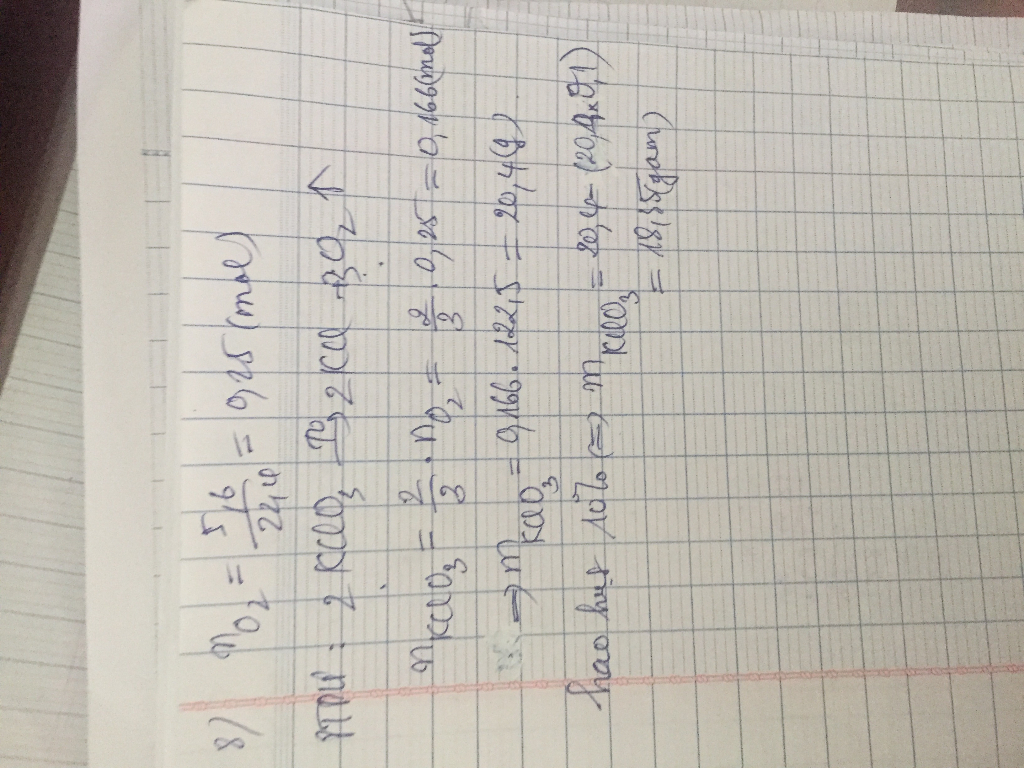 8) nO2 = 5,6/22,4 = 0,25 (mol)
PTPƯ : 2KClO3 T°→ 2KCl + 3O2 ↑
nKClO3 = 2/3 . nO2 = 2/3 . 0,25 = 0,166 (mol)
=> mKClO3 = 0,166 . 122,5 = 20,4 (g)
hao hụt 10% (=) mKClO3 = 20,4 - (20,4 x 0,1)
= 18,35 (gam)